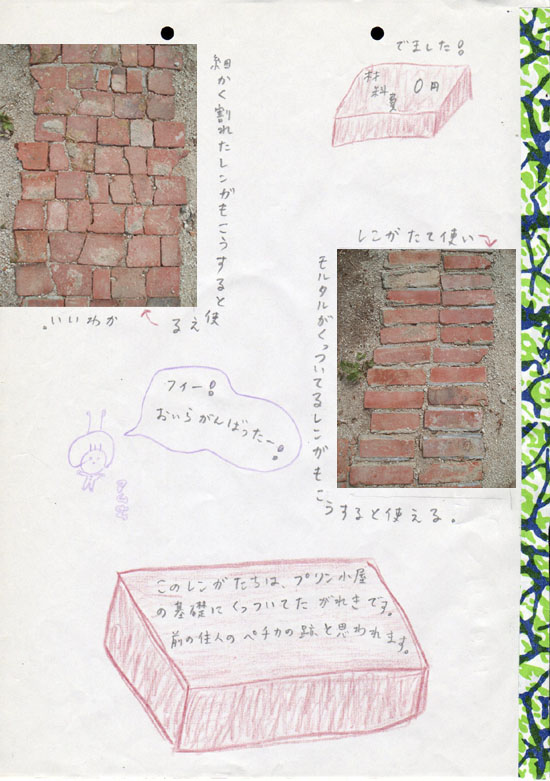 でました!
材料費
0円
細かく割れたレンガもこうすると使える
かわいい。
レンガたて使い
モルタルがくっついてるレンガもこうすると使える。
フィー!
おいらがんばったー!
このレンガたちは、プリン小屋
の基礎にくっついてた がれきです。
前の住人のペチカの跡と思われます。